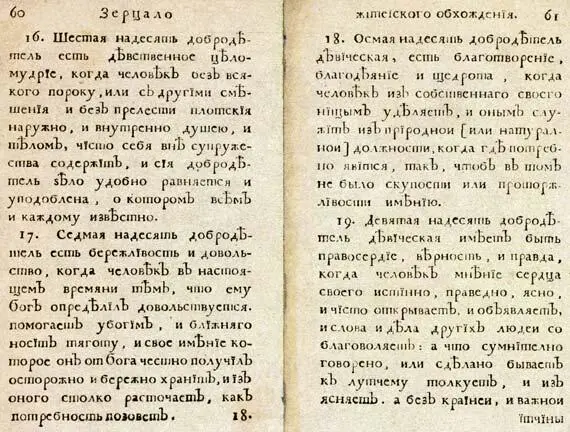 60 Зерцало
16. Шестая надесять добродѣ-
тель есть дѣвственное цѣло-
мудріе, когда человѣкъ безъ вся-
кого пороку, или съ другїми смѣ-
шенїя и безъ прелести плотскїя
наружно, и внутренно душею, и
тѣломъ, чїсто себя внѣ супруже-
ства содержїтъ, и сїя добродѣ-
тель ѕѣло удобно равняется и
уподоблена, о которомъ всѣмъ
и каждому извѣстно.
17. Седмая надесять добродѣ-
тель есть бережлївость и доволь-
ство, когда человѣкъ въ настоя-
щемъ времяни тѣмъ, что ему
богъ опредѣлїлъ довольствуется.
помогаетъ убогїмъ, и блїжняго
носїтъ тяготу, и свое имѣнїе ко-
торое онъ от бога честно получїлъ
осторожно и бережно хранїтъ, и їзъ
оного столко расточаетъ, какъ
потребность позоветъ. 18.
жїтеїского обхожденїя. 61
18. Осмая надесять добродѣтель
дѣвїческая, есть благотворенїе,
благодѣянїе и щедрота, когда
человѣкъ изъ собственнаго своего
нїщымъ удѣляетъ, и онымъ слу-
жїтъ изъ прїродной [или натурал-
ной] должности, когда гдѣ потреб-
но явїтся, такъ, чтобъ въ томъ
не было скупости или проторж-
лївости имѣнїю.
19. Девятая надесять добродѣ-
тель дѣвїческая имѣетъ быть
правосердїе, вѣрность, и правда,
когда человѣкъ мнѣнїе сердца
своего истїнно, праведно, ясно,
и чїсто открываетъ, и объявляетъ,
и слова и дѣла другїхъ людеи со
благоволяетъ: а что сумнїтелно
говорено, или сдѣлано бываетъ
къ лутчему толкуетъ, и изъ
ясняетъ. а безъ країнеи, и важнои
їтчїны